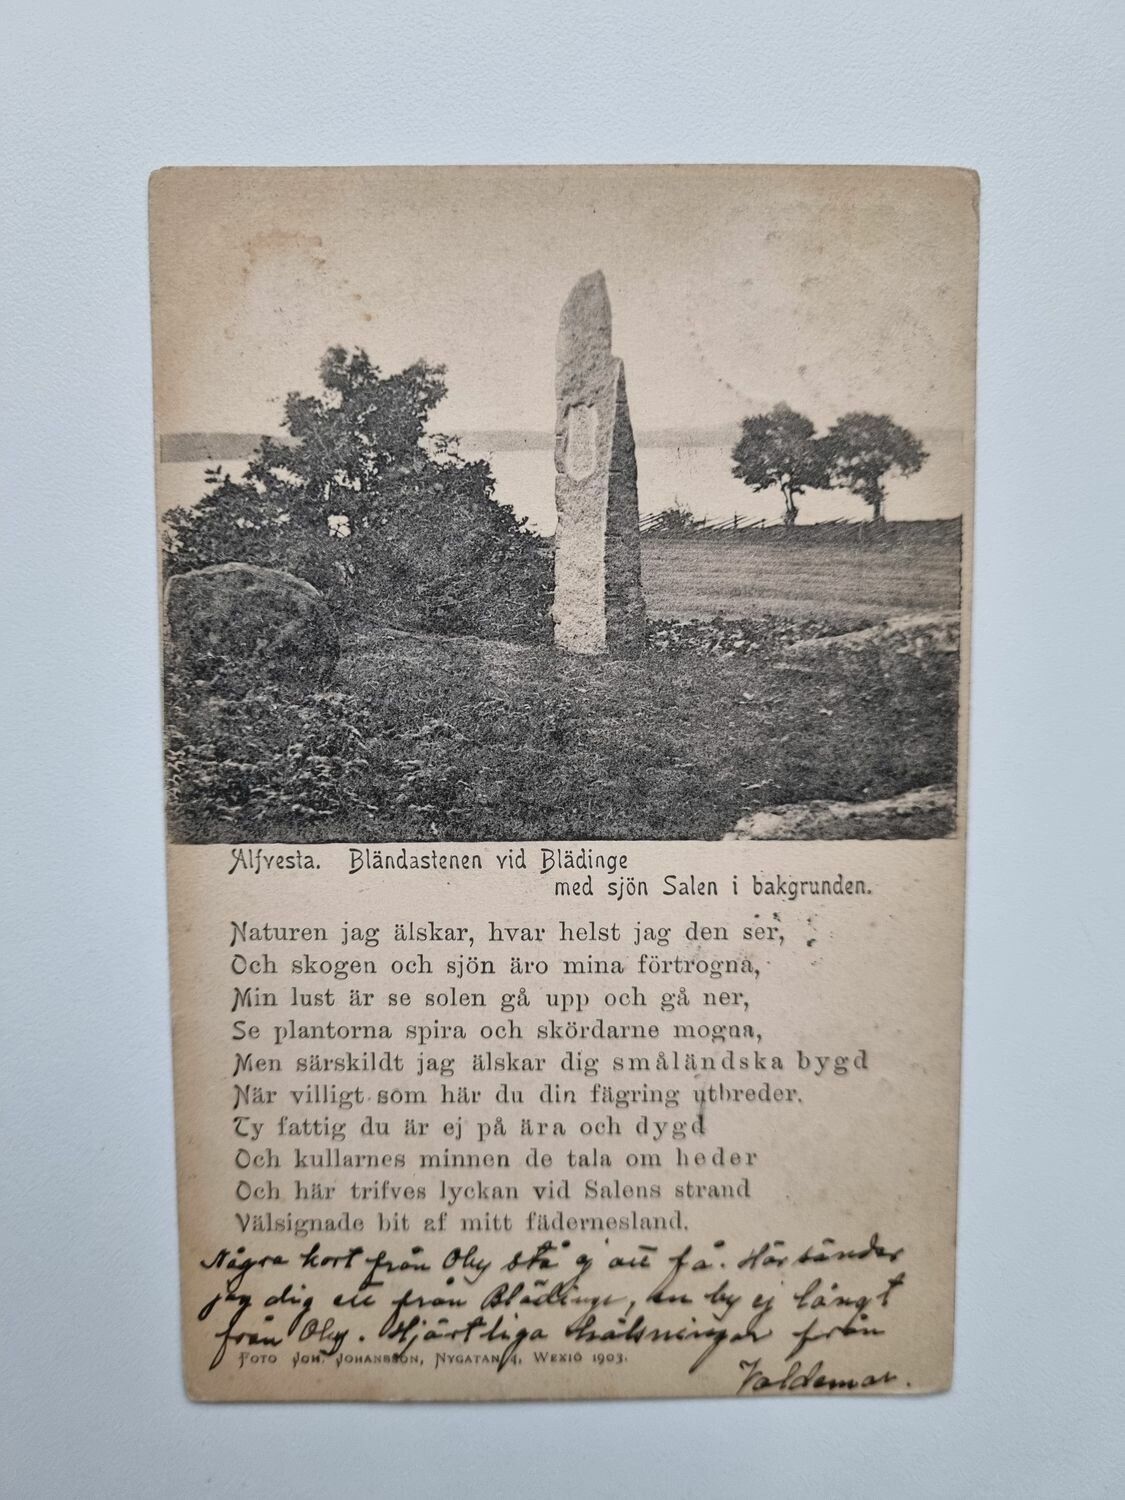 Alfvesta. Bländastenen vid Blädinge
med sjön Salen i bakgrunden.
Naturen jag älskar, hvar helst jag den ser,
Och skogen och sjön äro mina förtrogna,
Min lust är se solen gå upp och gå ner,
Se plantorna spira och skördarne mogna,
Men särskildt jag älskar dig småländska bygd
När villigt som här du din fägring utbreder.
Ty fattig du är ej på ära och dygd
Och kullarnes minnen de tala om heder
Och här trifves lyckan vid Salens strand
Välsignade bit af mitt fädernesland.
Några kort från Oby stå ej att få. Här sänder
jag dig ett från Blädinge, en by ej långt
från Oby. Hjärtliga hälsningar från
Foto Joh. Johansson, Nygatan 4, Wexiö 1903.
Valdemar.